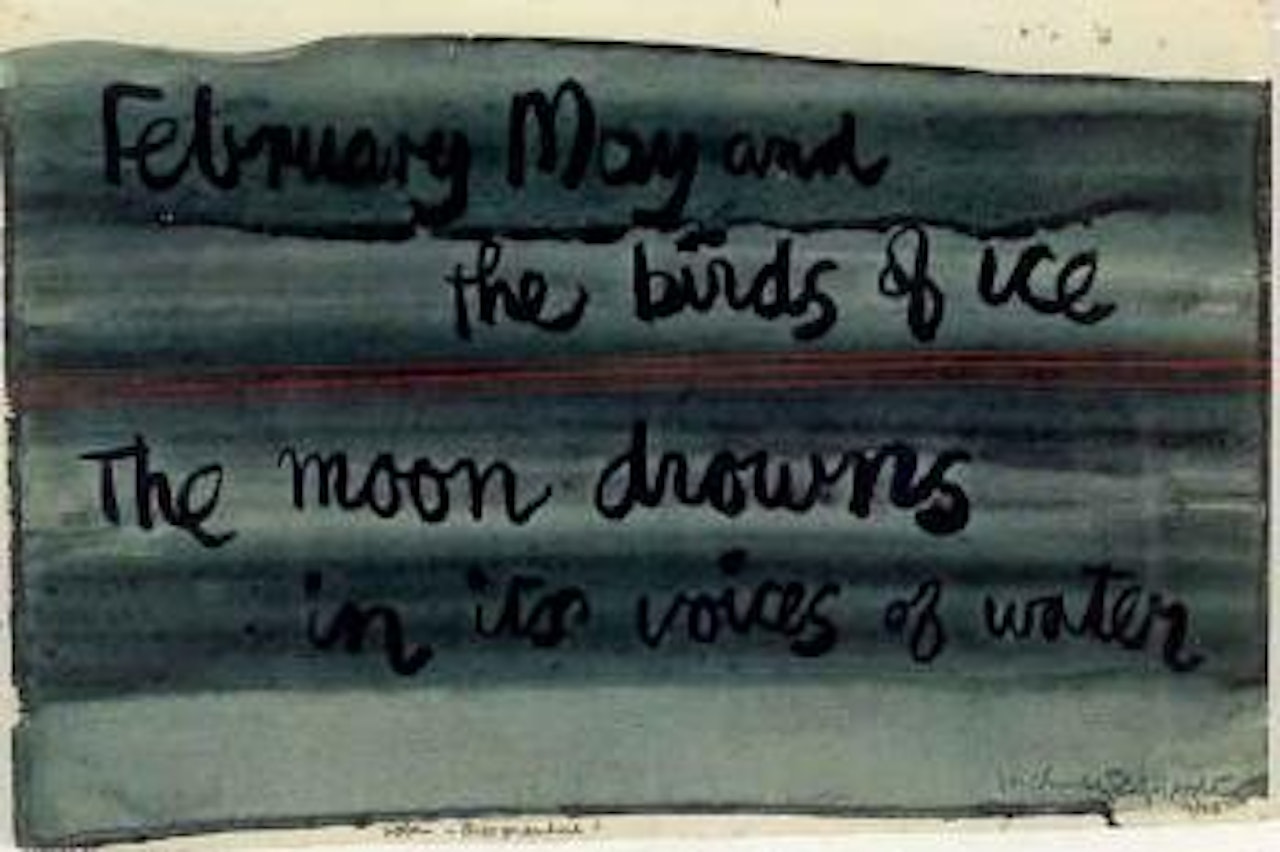 February May and
the birds of ice
The moon drowns
in its voices of water